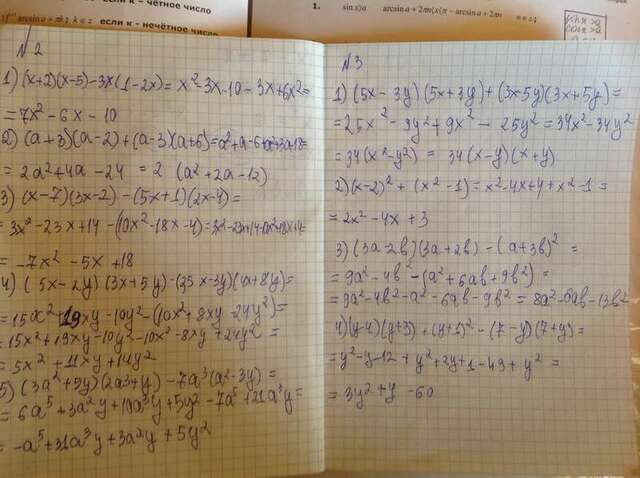 если к - чётное число
если к - нечётное число
1. sin x⟩a arcsin a + 2πn⟨x⟨π − arcsin a + 2πn n ∈ z;
N 2
1) (x+2)(x-5)-3x(1-2x)= x²-3x-10-3x+6x²=
= 7x² - 6x - 10
2) (a+3)(a-2)+(a-3)(a+6)=a²+a-6+a²+3a-18=
= 2a²+4a-24 = 2 (a²+2a-12)
3) (x-7)(3x-2)-(5x+1)(2x-4)=
= 3x²-23x+14-(10x²-18x-4)=3x²-23x+14-10x²+18x+4=
= -7x² -5x +18
4) (5x-2y)(3x+5y)-(2,5x-3y)(4x+8y)=
= 15x²+19xy-10y²-(10x²+8xy-24y²)=
= 15x²+19xy-10y²-10x²-8xy+24y² =
= 5x²+11xy+14y²
5) (3a²+5y)(2a³+y)-7a³(a²-3y)=
= 6a⁵+3a²y+10a³y+5y²-7a⁵+21a³y=
= -a⁵+31a³y+3a²y+5y²
N 3
1) (5x-3y)(5x+3y)+(3x-5y)(3x+5y)=
= 25x²-9y²+9x²-25y²=34x²-34y²
= 34(x²-y²) = 34(x-y)(x+y)
2) (x-2)²+(x²-1)=x²-4x+4+x²-1=
= 2x²-4x+3
3) (3a-2b)(3a+2b)-(a+3b)²=
= 9a²-4b²-(a²+6ab+9b²)=
= 9a²-4b²-a²-6ab-9b²=8a²-6ab-13b²
4) (y-4)(y+3)+(y+1)²-(7-y)(7+y)=
= y²-y-12+y²+2y+1-49+y² =
= 3y²+y-60